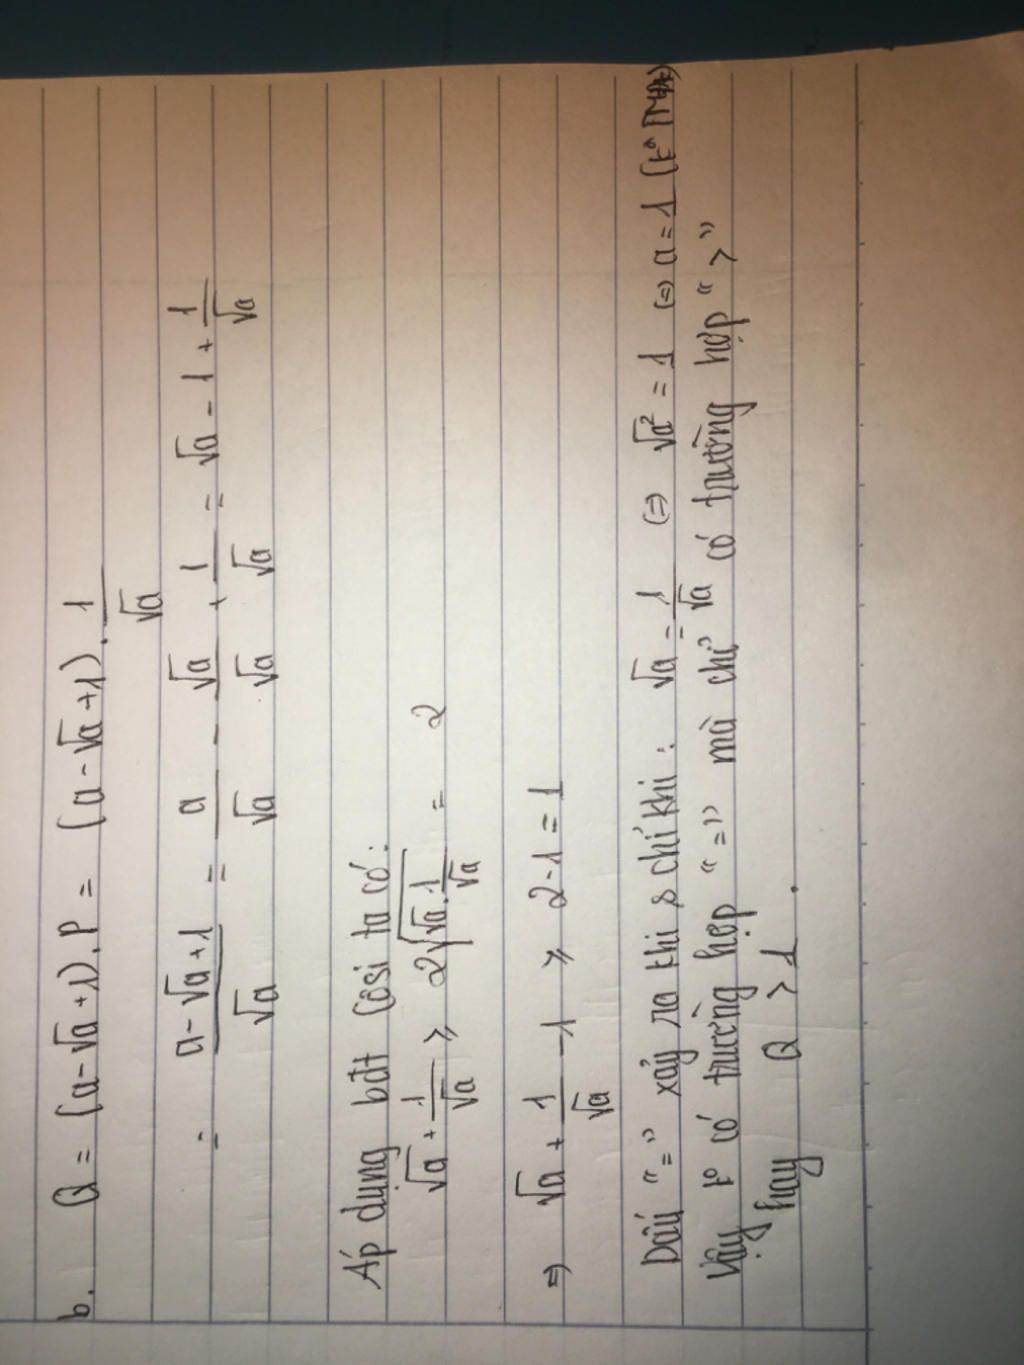 b. Q = (a-√a+1).P = (a-√a+1). 1/√a
= (a-√a+1)/√a = a/√a - √a/√a + 1/√a = √a - 1 + 1/√a
Áp dụng bất Cosi ta có:
√a + 1/√a ≥ 2√(√a.1/√a) = 2
⇒ √a + 1/√a - 1 ≥ 2-1=1
Dấu "=" xảy ra khi & chỉ khi: √a = 1/√a ⇔ √a² = 1 ⇔ a = 1 (k° TMĐK)
Vậy k° có trường hợp "=" mà chỉ có trường hợp ">"
hay Q > 1.